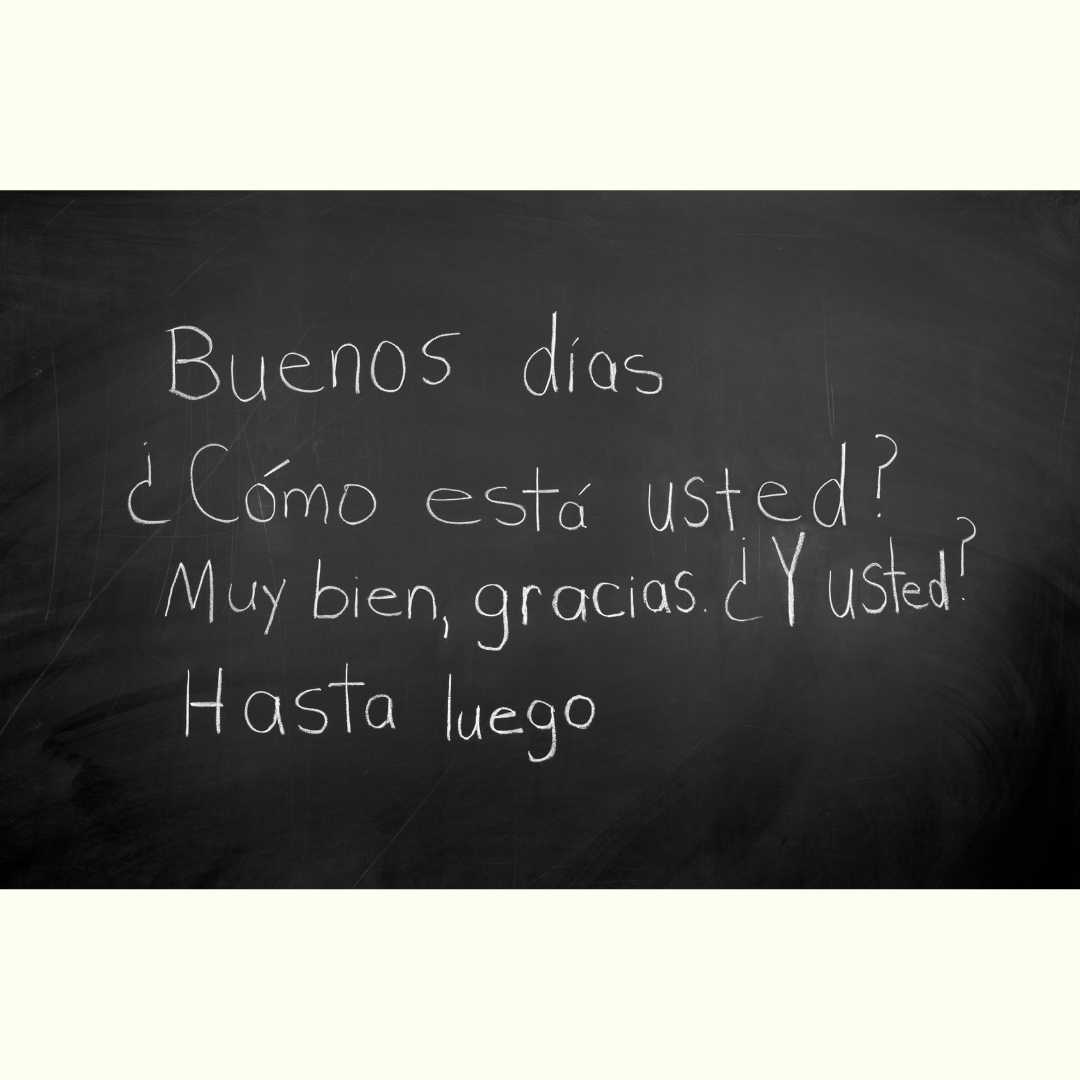 Buenos días
¿Cómo está usted?
Muy bien, gracias. ¿Y usted?
Hasta luego